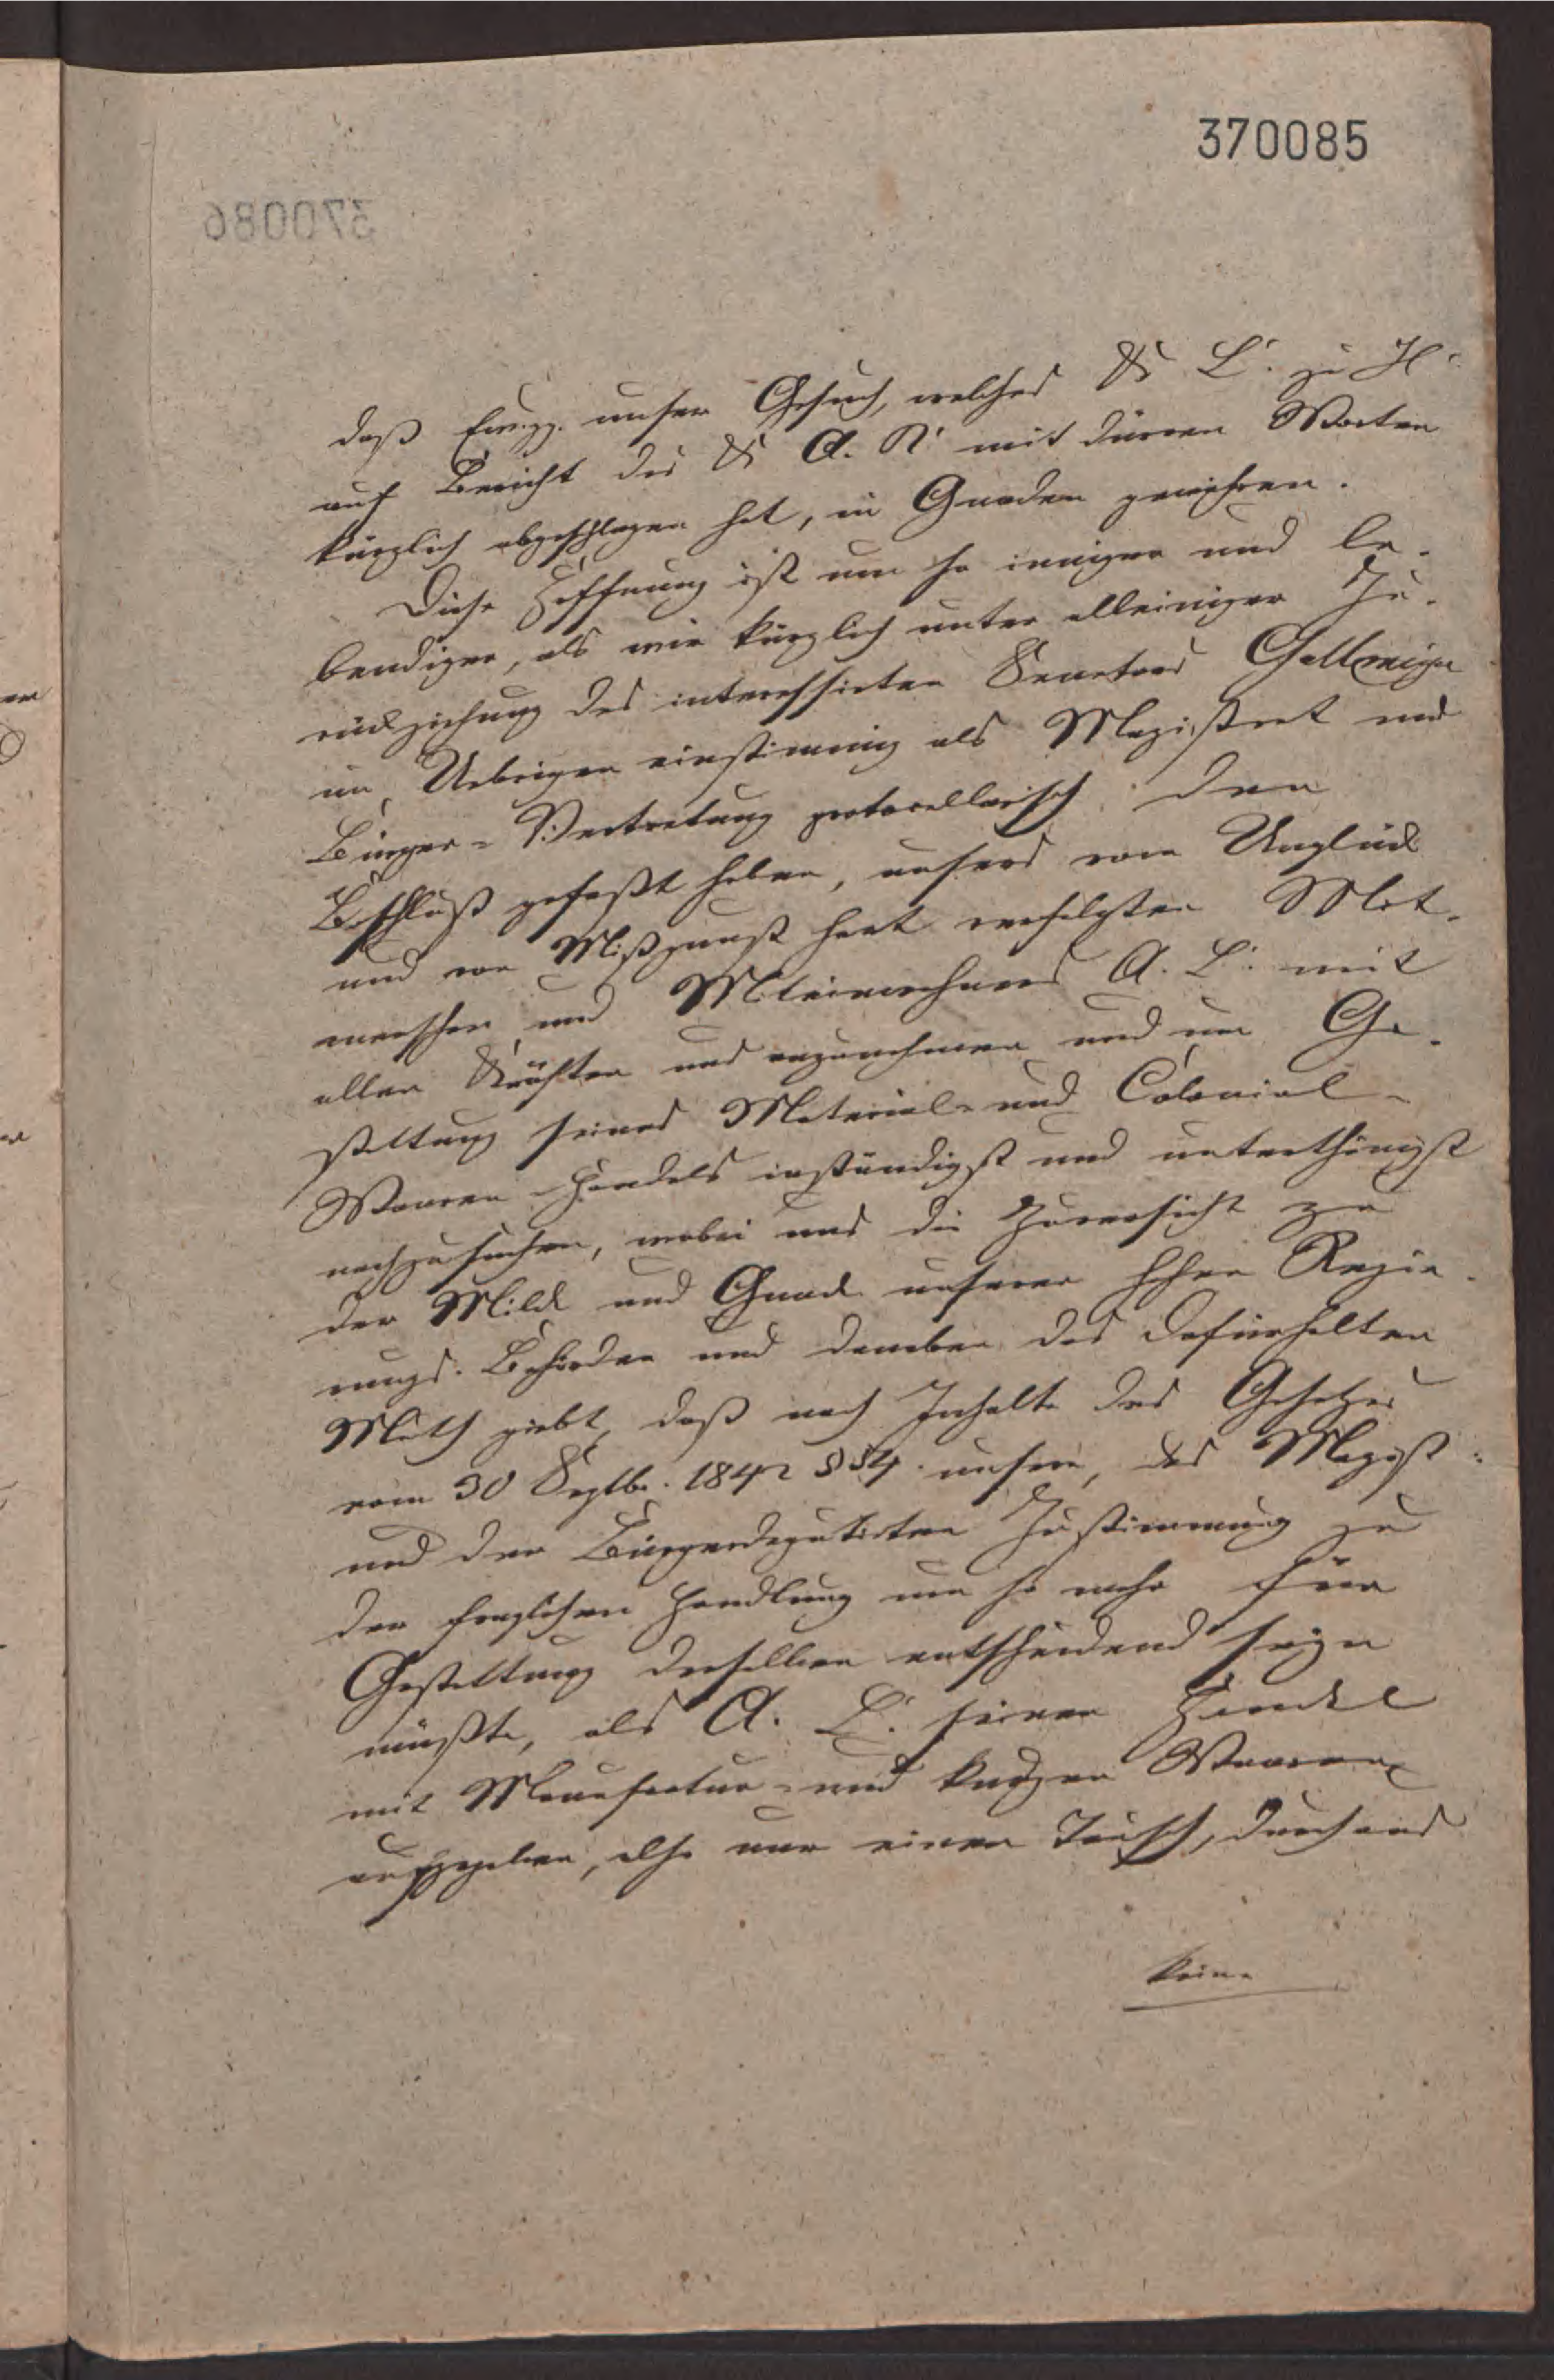 370085
370086
daß Ew. pp. unser Gesuch, welches K L. zu H.
auf Bericht des K A. R. mit dürren Worten
kürzlich abgeschlagen hat, in Gnaden gewähren.
Diese Hoffnung ist um so inniger und le-
bendiger, als wir kürzlich unter alleiniger Zu-
rückziehung des interessirten Senators
im Uebrigen einstimmig als Magistrat und
Bürger-Vertretung protocollarisch den
Beschluß gefaßt haben, unsers vom Unglück
und von Mißgunst hart verfolgten Mit-
menschen und Miteinwohners A. L. mit
allen Kräften uns anzunehmen und um Ge-
stattung seines Material- und Colonial-
Waaren-Handels inständigst und unterthänigst
nachzusuchen, wobei uns die Zuversicht zu
der Milde und Gnade unserer hohen Regie-
rungs-Behörden und daneben das Dafürhalten
Muth giebt, daß nach Inhalte des Gesetzes
vom 30 Septbr. 1842 § 54. unsere, des Magist:
und der Bürgerdeputirten Zustimmung zu
der fraglichen Handlung um so mehr für
Gestattung derselben entscheidend seyn
müßte, als A. L. seinen Handel
mit Manufactur- und kurzen Waaren
aufgegeben, also nur einen Tausch, durchaus
keine